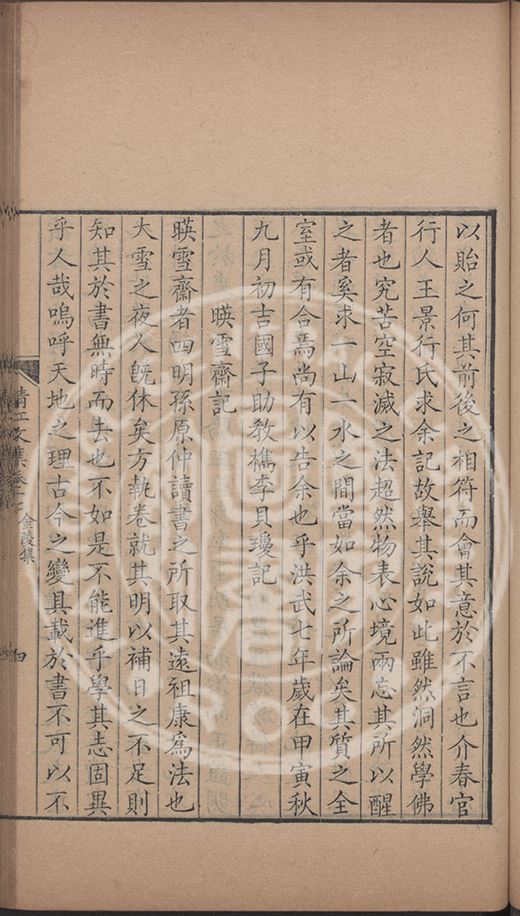 以貽之何其前後之相符而會其意於不言也介春官
行人王景行氏求余記故舉其說如此雖然洞然學佛
者也究苦空寂滅之法超然物表心境兩忘其所以醒
之者奚求一山一水之間當如余之所論矣其質之全
室或有合焉尚有以告余也乎洪武七年歲在甲寅秋
九月初吉國子助教檇李貝瓊記
暎雪齋記
暎雪齋者四明孫原仲讀書之所取其遠祖康爲法也
大雪之夜人既休矣方執卷就其明以補日之不足則
知其於書無時而去也不如是不能進乎學其志固異
乎人哉嗚呼天地之理古今之變具載於書不可以不
金陵集
四